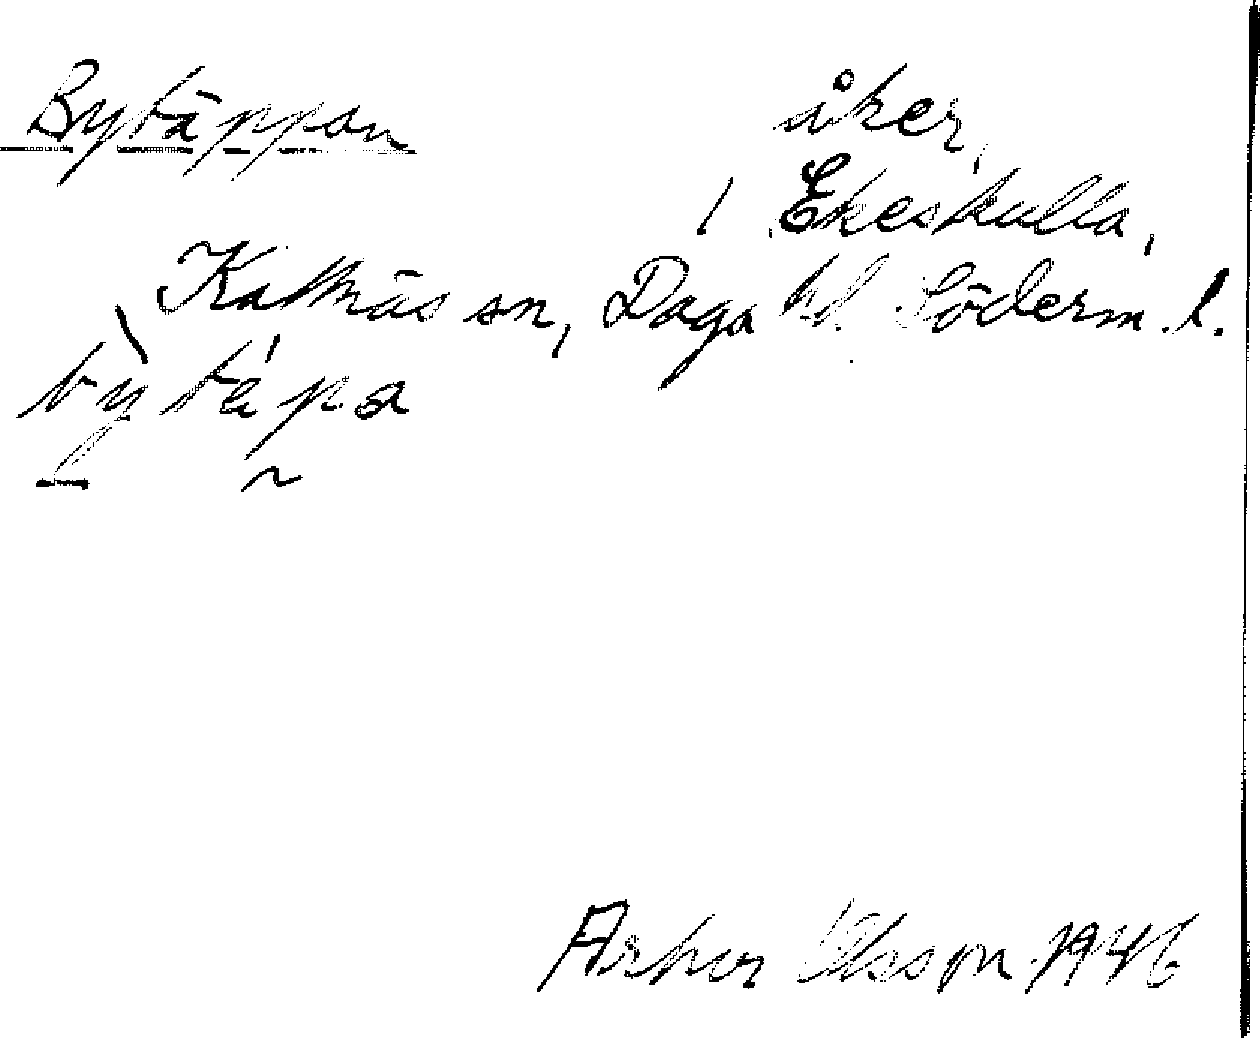 Bytäppan åker,
i Ekeskulla,
Kattnäs sn, Daga hd. Söderm. l.
bỳtépa
Arthur Olsson 1946